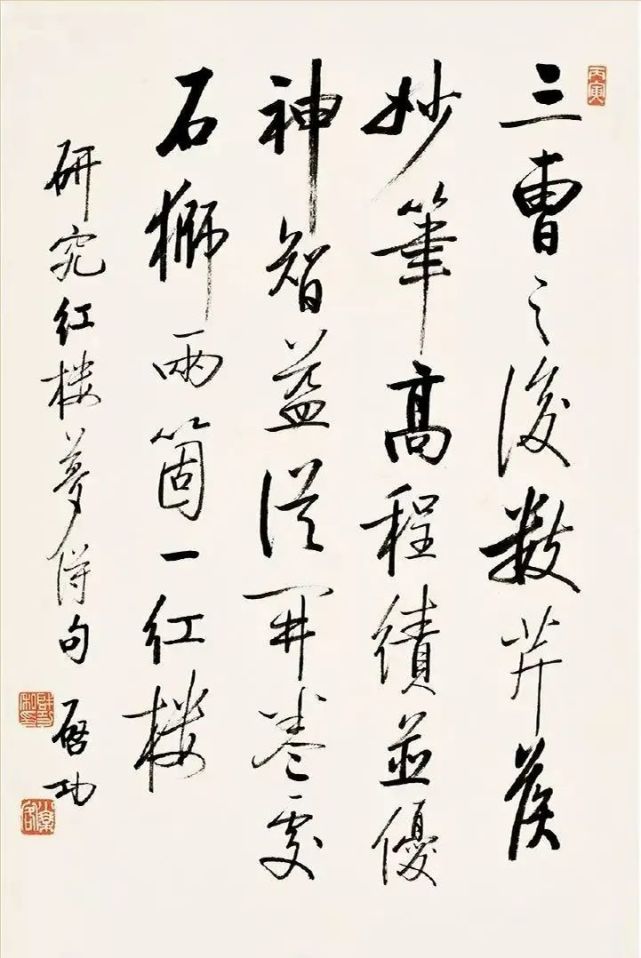 丙寅
三曹之後數芹侯
妙筆高程績並優
神智益從開卷處
石獅兩箇一紅樓
研究紅樓夢得句
啓功